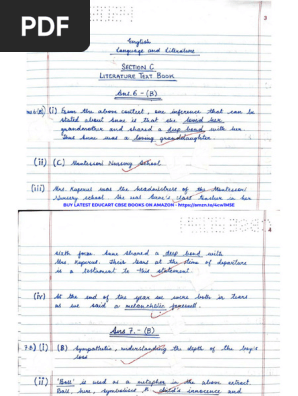 PDF
3
English
Language and Literature
SECTION C
LITERATURE TEXT BOOK
Ans. 6 - (B)
(i) From the above context, one inference that can be
stated about Anne is that she loved her
grandmother and shared a deep bond with her.
Thus Anne was a loving granddaughter.
(ii) (C) Montessori Nursery School
(iii) Mrs. Kuperus was the headmistress of the Montessori
Nursery school. She was Anne's class teacher in her
BUY LATEST EDUCART CBSE BOOKS ON AMAZON -
4
sixth form. Anne shared a deep bond with
Mrs. Kuperus. Their tears at the time of departure
is a testament to this statement.
(iv) At the end of the year we were both in tears
as we said a melancholic farewell.
Ans 7. - (B)
7.B) (i) (B) Sympathetic, understanding the depth of the boy's
loss
(ii) 'Ball' is used as a metaphor in the above extract.
Ball, here, symbolises child's innocence and